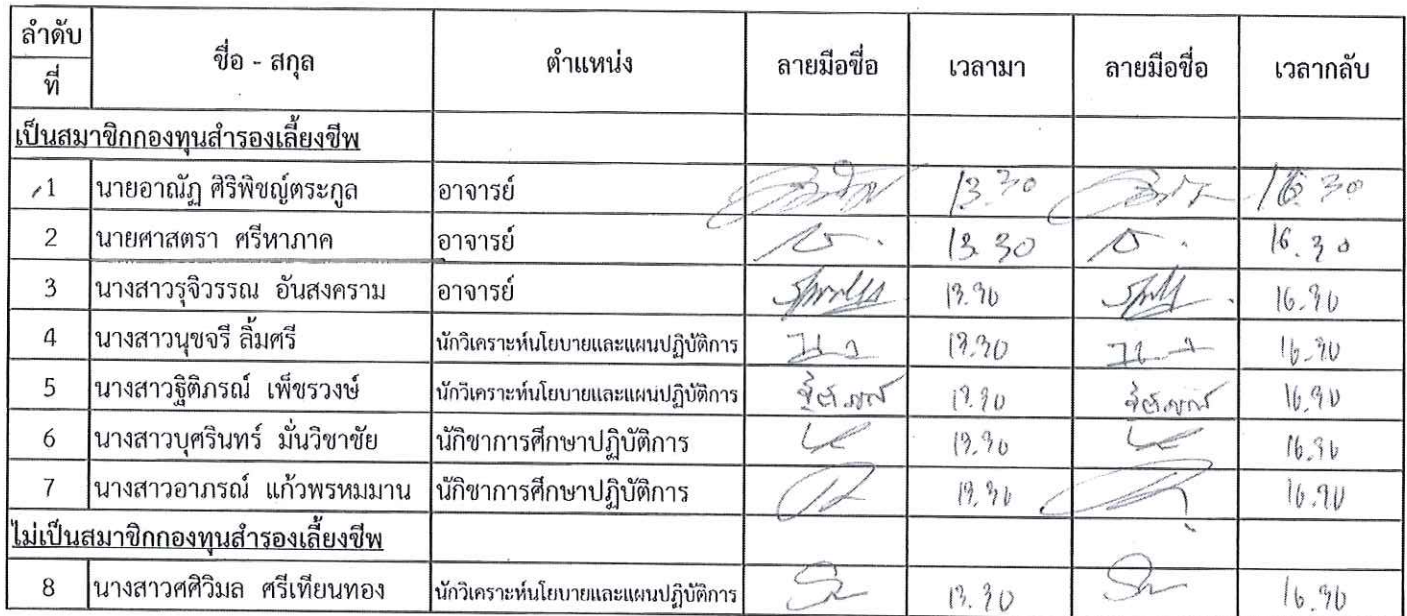 ลำดับที่ ชื่อ - สกุล ตำแหน่ง ลายมือชื่อ เวลามา ลายมือชื่อ เวลากลับ
เป็นสมาชิกกองทุนสำรองเลี้ยงชีพ
1 นายอาณัฏ ศิริพิชญ์ตระกูล อาจารย์ 13.30 16.30
2 นายศาสตรา ศรีหาภาค อาจารย์ 13.30 16.30
3 นางสาวรุจิวรรณ อันสงคราม อาจารย์ 13.30 16.30
4 นางสาวนุชจรี ลิ้มศรี นักวิเคราะห์นโยบายและแผนปฏิบัติการ 13.30 16.30
5 นางสาวฐิติภรณ์ เพ็ชรวงษ์ นักวิเคราะห์นโยบายและแผนปฏิบัติการ ฐิติภรณ์ 13.30 ฐิติภรณ์ 16.30
6 นางสาวบุศรินทร์ มั่นวิชาชัย นักิชาการศึกษาปฏิบัติการ 13.30 16.30
7 นางสาวอาภรณ์ แก้วพรหมมาน นักิชาการศึกษาปฏิบัติการ 13.30 16.30
ไม่เป็นสมาชิกกองทุนสำรองเลี้ยงชีพ
8 นางสาวศศิวิมล ศรีเทียนทอง นักวิเคราะห์นโยบายและแผนปฏิบัติการ 13.30 16.30